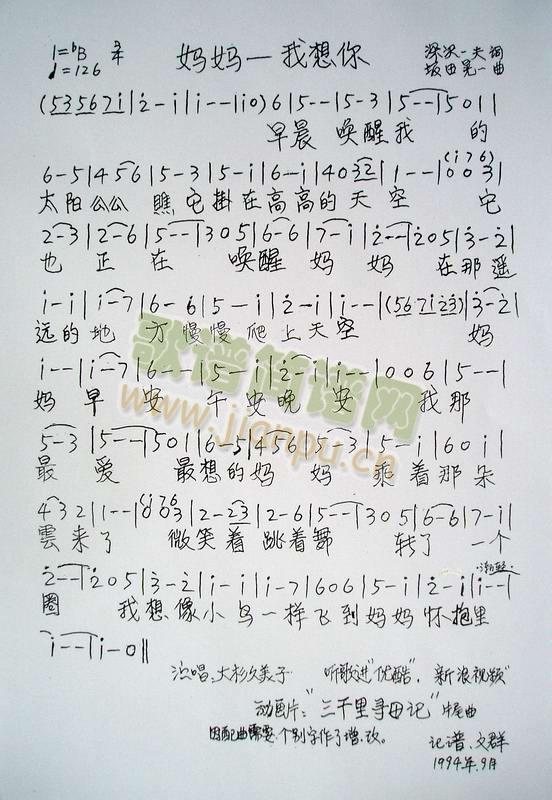 1=♭B 3/4
♩=126
妈妈—我想你
深沢一夫 词
坂田晃一 曲
(5 3 5 6 7 i | 2 - i | i - - | i 0) 6 | 5 - - | 5 - 3 | 5 - - | 5 0 1 |
早晨 唤醒我 的
6 - 5 | 4 5 6 | 5 - 3 | 5 - i | 6 - i | 4 0 3 2 | 1 - - | 0 0 3 | (i 7 6)
太阳公公 瞧它掛在高高的天空 它
2 - 3 | 2 - 6 | 5 - - | 3 0 5 | 6 - 6 | 7 - i | 2 - - | 2 0 5 | 3 - 2 |
也 正 在 唤醒 妈 妈 在那遥
i - i | i - 7 | 6 - 6 | 5 - i | 2 - i | i - - | (5 6 7 i 2 3) | 3 - 2 |
远的地 方慢慢爬上天空 妈
i - - | i - 7 | 6 - - | 5 - i | 2 - i | i - - | 0 0 6 | 5 - - |
妈 早 安 午安晚 安 我那
5 - 3 | 5 - - | 5 0 1 | 6 - 5 | 4 5 6 | 5 - 3 | 5 - i | 6 0 i |
最 爱 最想的妈 妈 乘着那朵
4 3 2 | 1 - - | 0 0 3 | (i 7 6) 2 - 2 3 | 2 - 6 | 5 - - | 3 0 5 | 6 - 6 | 7 - i |
雲来了 微笑着跳着舞 转了 一个
2 - - | 2 0 5 | 3 - 2 | i - i | i - 7 | 6 0 6 | 5 - i | 2 - i | i - - |
圈 我想像小鸟一样飞到妈妈怀抱里
i - - | i - 0 ‖
演唱:大杉久美子 听歌进"优酷",新浪视频"
动画片:"三千里寻母记"片尾曲
因配曲需要,个别字作了增、改。
记谱.文群
1994年.9月
歌谱简谱网
www.jianpu.cn